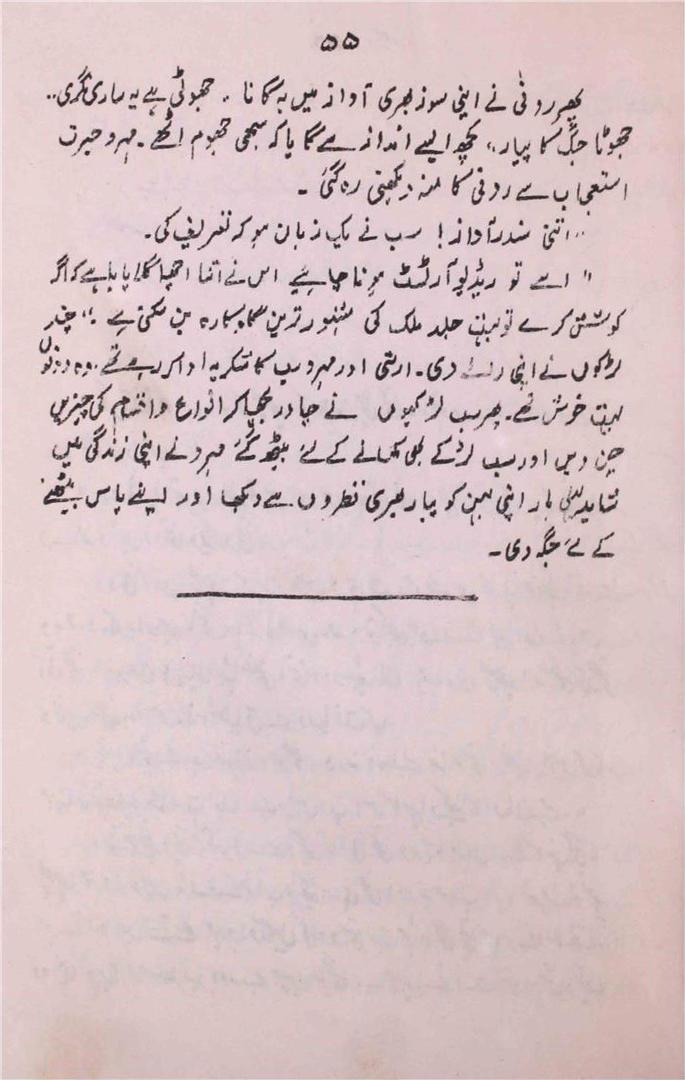 ۵۵
پھر رونی نے اپنی سوز بھری آواز میں یہ گانا ،، جھوٹی ہے یہ ساری نگری،،
جھوٹا جگ کا پیار،، کچھ ایسے انداز سے گایا کہ سبھی جھوم اٹھے۔ مہرو حیرت
استعجاب سے رونی کا منہ دیکھتی رہ گئی ۔
،،اتنی سندر آواز! سب نے یک زبان ہو کہ تعریف کی۔
" اسے تو ریڈیو آرٹسٹ ہونا چاہئیے اس نے اتنا اچھا گلا پایا ہے کہ اگر
کوشش کرے تو بہت جلد ملک کی مشہور ترین گلوکارہ بن سکتی ہے ۔،، چند
لڑکوں نے اپنی رائے دی۔ ارشی اور مہرو سب کا شکریہ ادا کر رہے تھے ۔ وہ دونوں
بہت خوش تھے۔ پھر سب لڑکیوں نے چادر بچھا کر انواع و اقسام کی چیزیں
چن دیں اور سب لڑکے بھی کھانے کے لئے بیٹھ گئے مہرو نے اپنی زندگی میں
شاید پہلی بار اپنی بہن کو پیار بھری نظروں سے دیکھا اور اپنے پاس بیٹھنے
کے لئے جگہ دی۔